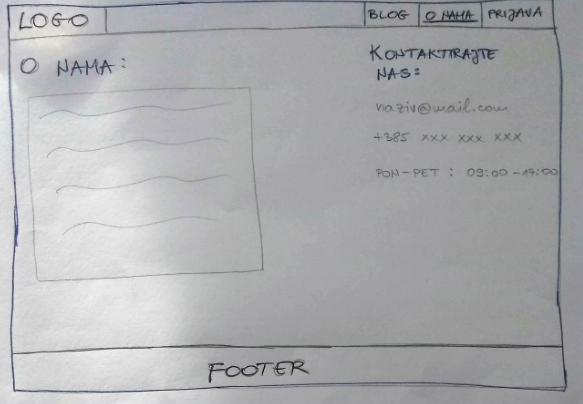 LOGO
BLOG O NAMA PRIJAVA
O NAMA:
KONTAKTIRAJTE
NAS:
naziv@mail.com
+385 xxx xxx xxx
PON-PET : 09:00-17:00
FOOTER